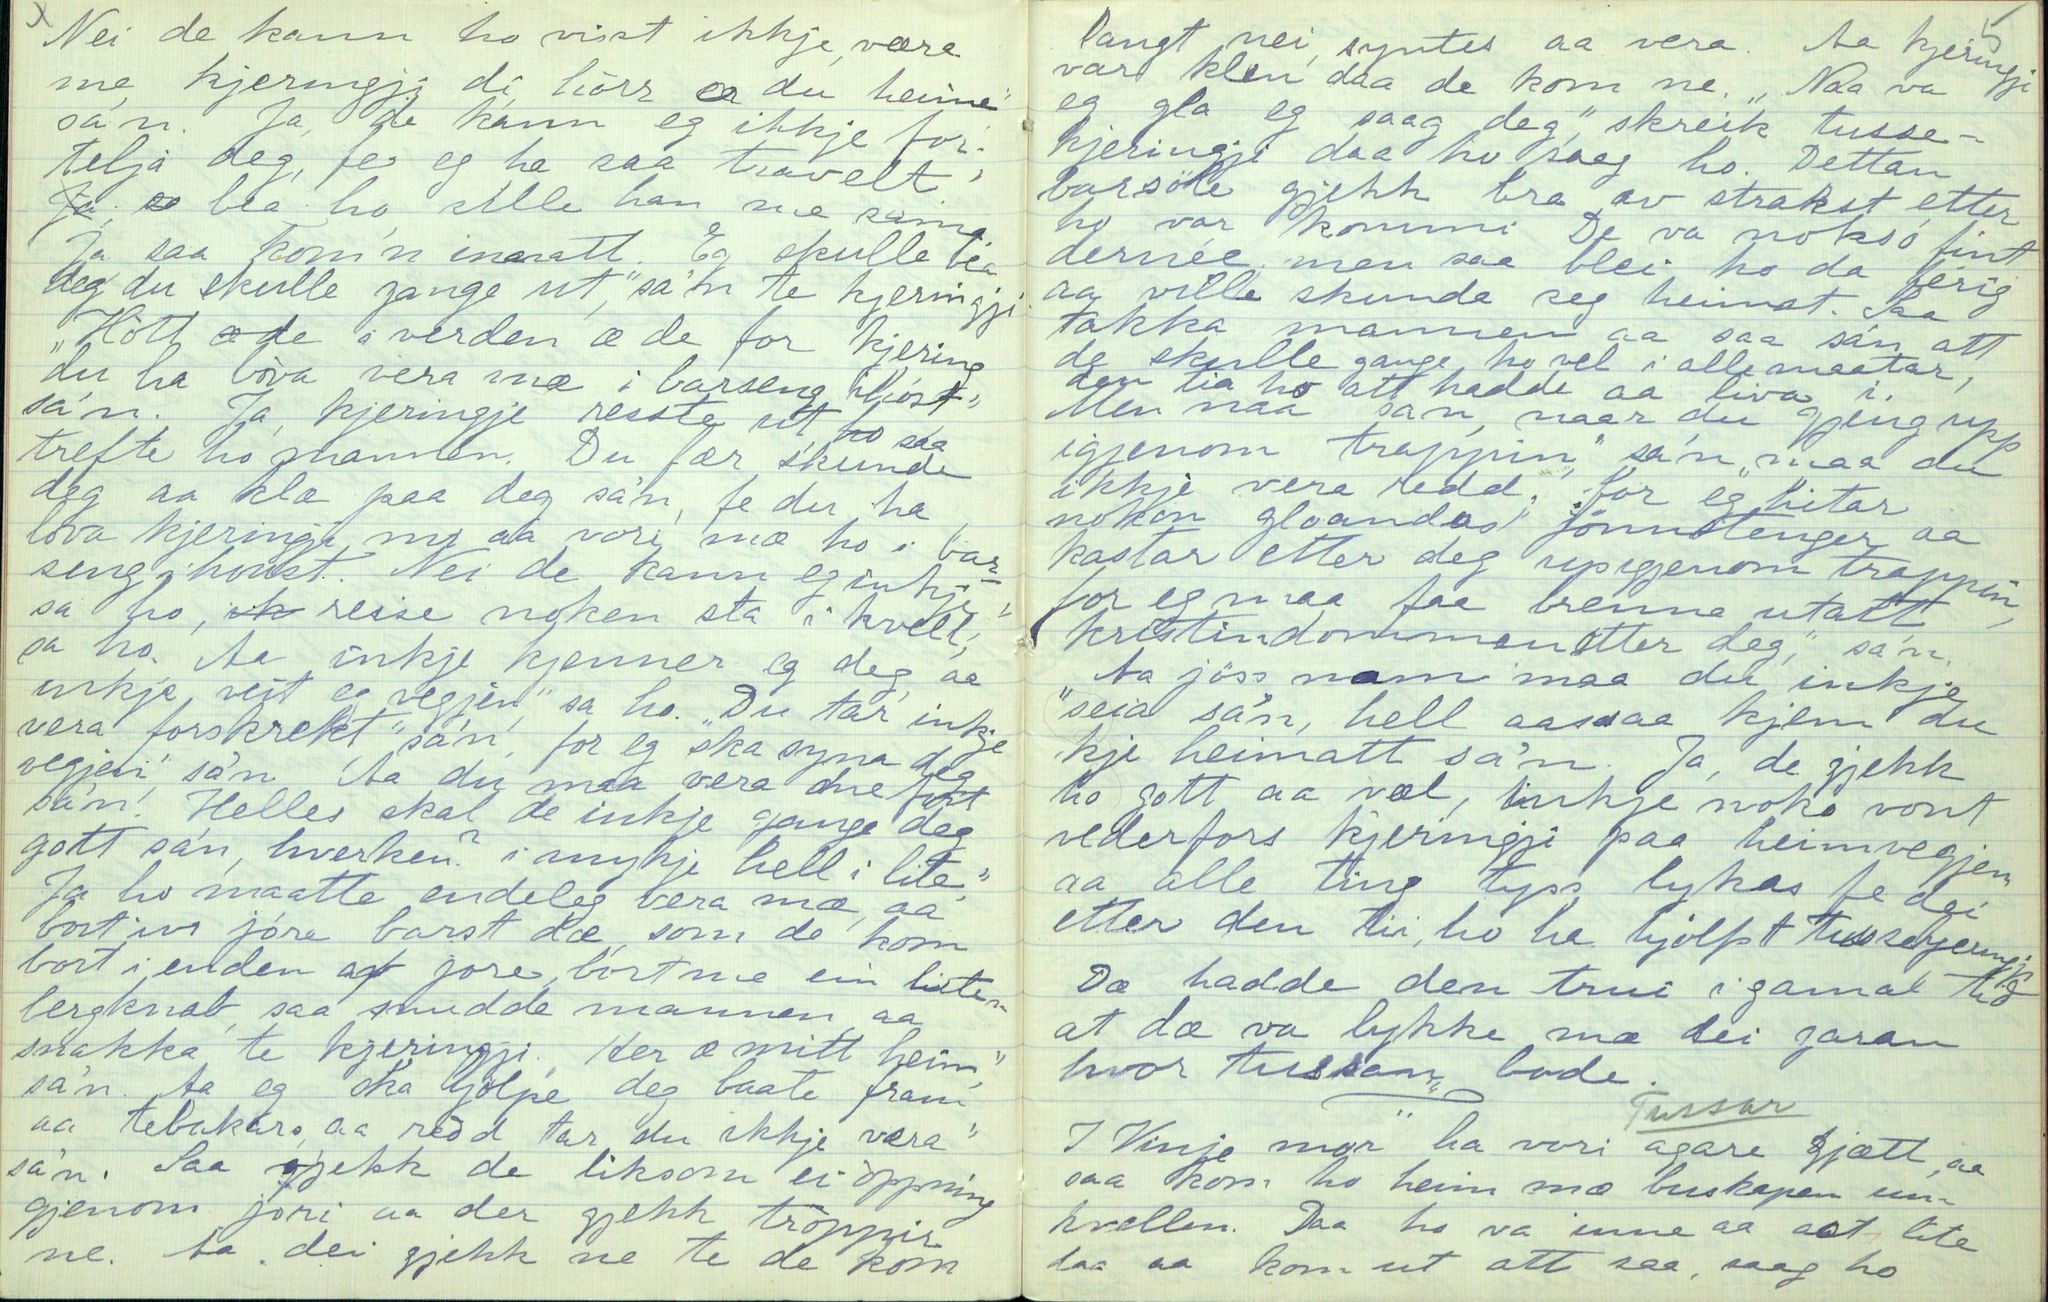 Nei de kann ho visst ikkje være
me kjeringji di hörr er du heime"
sa'n. Ja, de kann eg ikkje for-
telja deg, fe eg ha saa travelt"
bia ho stille han me sama
Ja saa kom'n innatt. Eg skulle bia
deg du skulle gange ut," sa'n te kjeringji
"Hött æ de i verden æ de for kjering
du ha lova vera mæ i barseng höst"
sa'n. Ja, kjeringje resste ut, saa
trefte ho mannen. Du fær skunde
deg aa klæ paa deg sa'n, fe du ha
lova kjeringi mi aa vori mæ ho i bar-
seng i houst. Nei de kann eg inkje"
sa ho, resse noken sta i kvell,"
sa ho. Aa inkje kjenner eg deg, aa
inkje veit eg vegjen," sa ho. "Du tar inkje
vera forskrekt" sa'n, for eg ska syna deg
vegjen," sa'n Aa du maa vera me fort
sa'n! Helles skal de inkje gange deg
gott sa'n, hverken? i mykje hell i lite,"
Ja ho maatte endeleg vera mæ, aa
bortivi jóre barst dæ, som de kom
bort i enden af jore, bort me ein liten
bergknab, saa snudde mannen aa
snakka te kjeringji. Her æ mitt heim,"
sa'n. Aa eg ska hjölpe deg baate fram
aa tebakars, aa redd tar du ikkje vera"
sa'n. Saa gjekk de liksom ei öppning
gjenom jori aa der gjekk tröppir
ne. Aa dei gjekk ne te de kom
5
langt nei, syntes aa vera. Aa kjeringji
var klen daa de kom ne. "Naa va
eg gla eg saag deg," skreik tusse-
kjeringji daa ho saag ho. Dettan
barsöle gjekk bra av strakst etter
ho var kommi De va noksó fint
dernée, men saa blei ho da ferig
aa ville skunda seg heimat. Saa
takka mannen aa saa sa'n att
de skulle gange ho vel i alle maatar,
den tia ho att hadde aa liva i.
Men naa sa'n, naar du gjeng upp
igjenom trappin," sa'n, "maa du
ikkje vera redd, for eg hitar
nokon gloandas jönnstenger aa
kastar etter deg upigjenom trappin,
for eg maa faa brenne utatt
kristindommen etter deg," sa'n.
Aa jöss nam maa du inkje
"seia sa'n, hell aassaa kjem du
kje heimatt sa'n. Ja, de gjekk
ho gott aa væl, inkje noko vont
vederfors kjeringji paa heimvegjen
aa alle ting tyss lykas fe dei
etter den tii, ho ha hjölpt tussekjeringji
Dæ hadde den trui i gamal tid
at dæ va lykke mæ dei garan
hvor tussan bode.
Tussar
I Vinje mor ha vori agare gjætt, aa
saa kom ho heim mæ buskapen um
kvellen. Daa ho va inne aa aat lite
daa aa kom ut att saa, saag ho